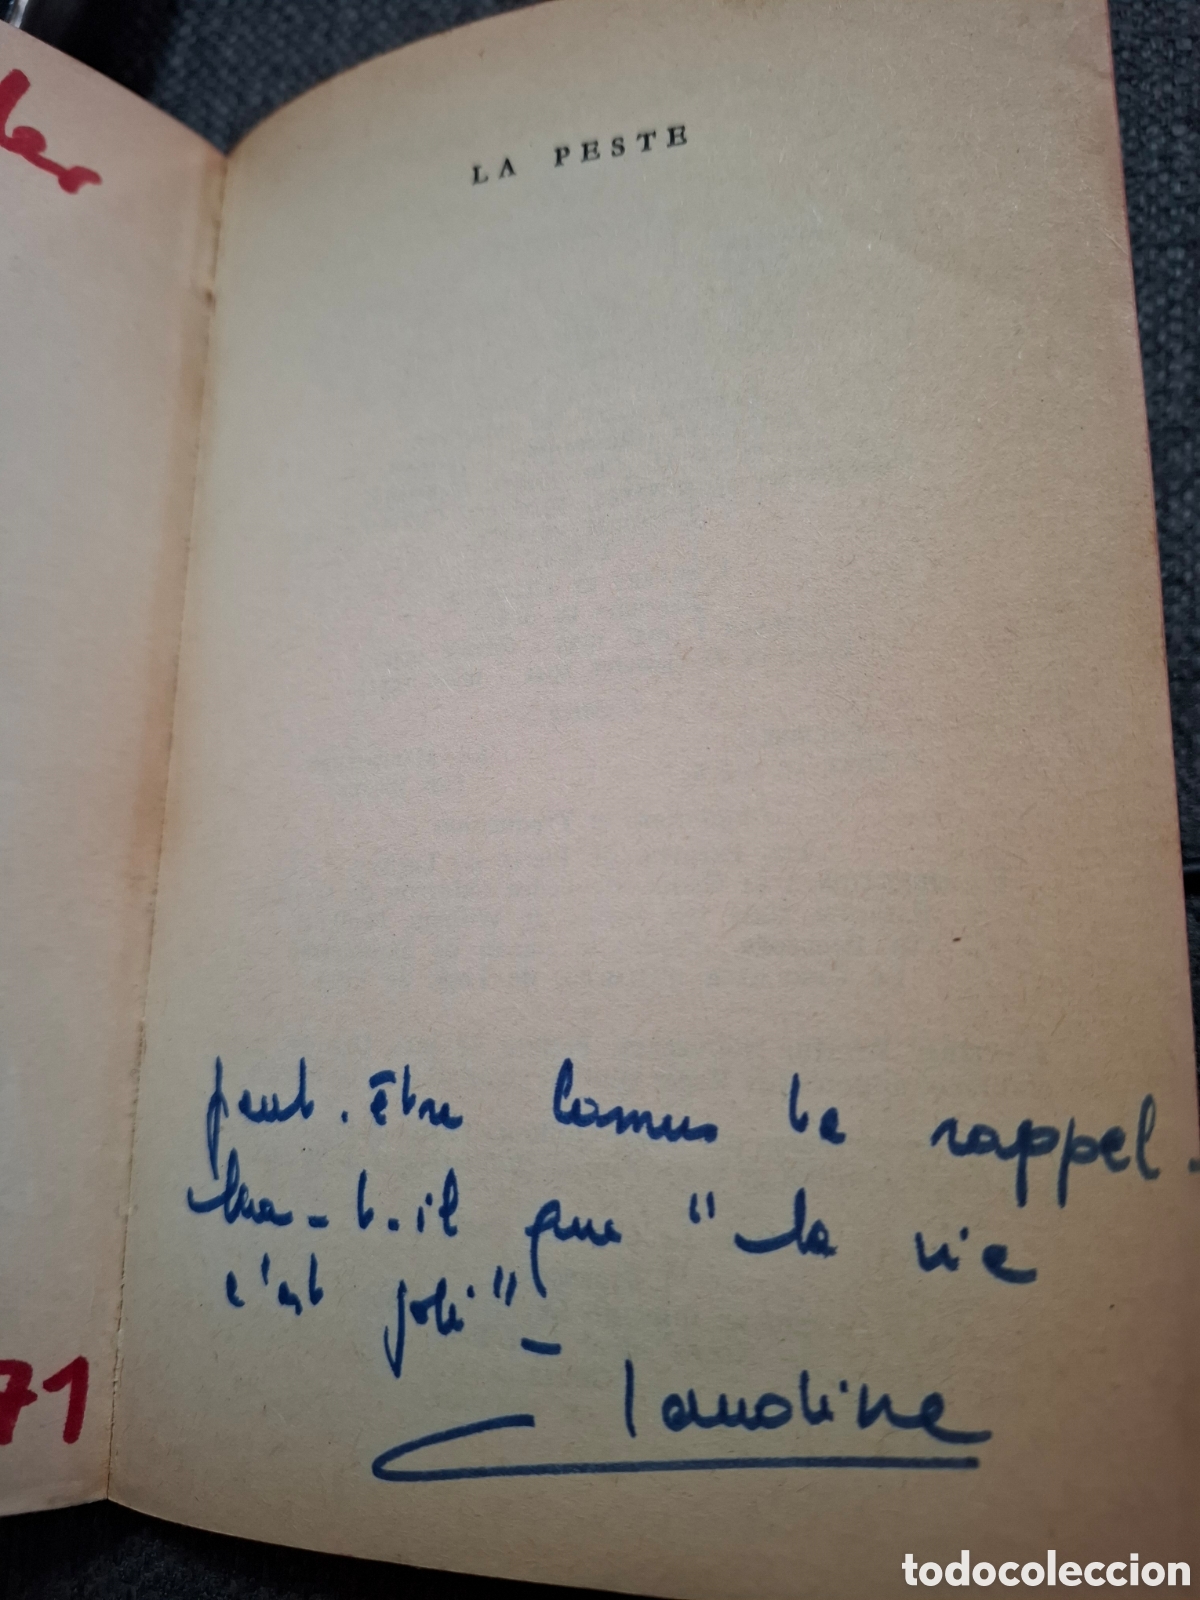 LA PESTE
peut-être Camus te rappel-
lera-t-il que "la vie
c'est joli" -
Claudine
71
todocoleccion